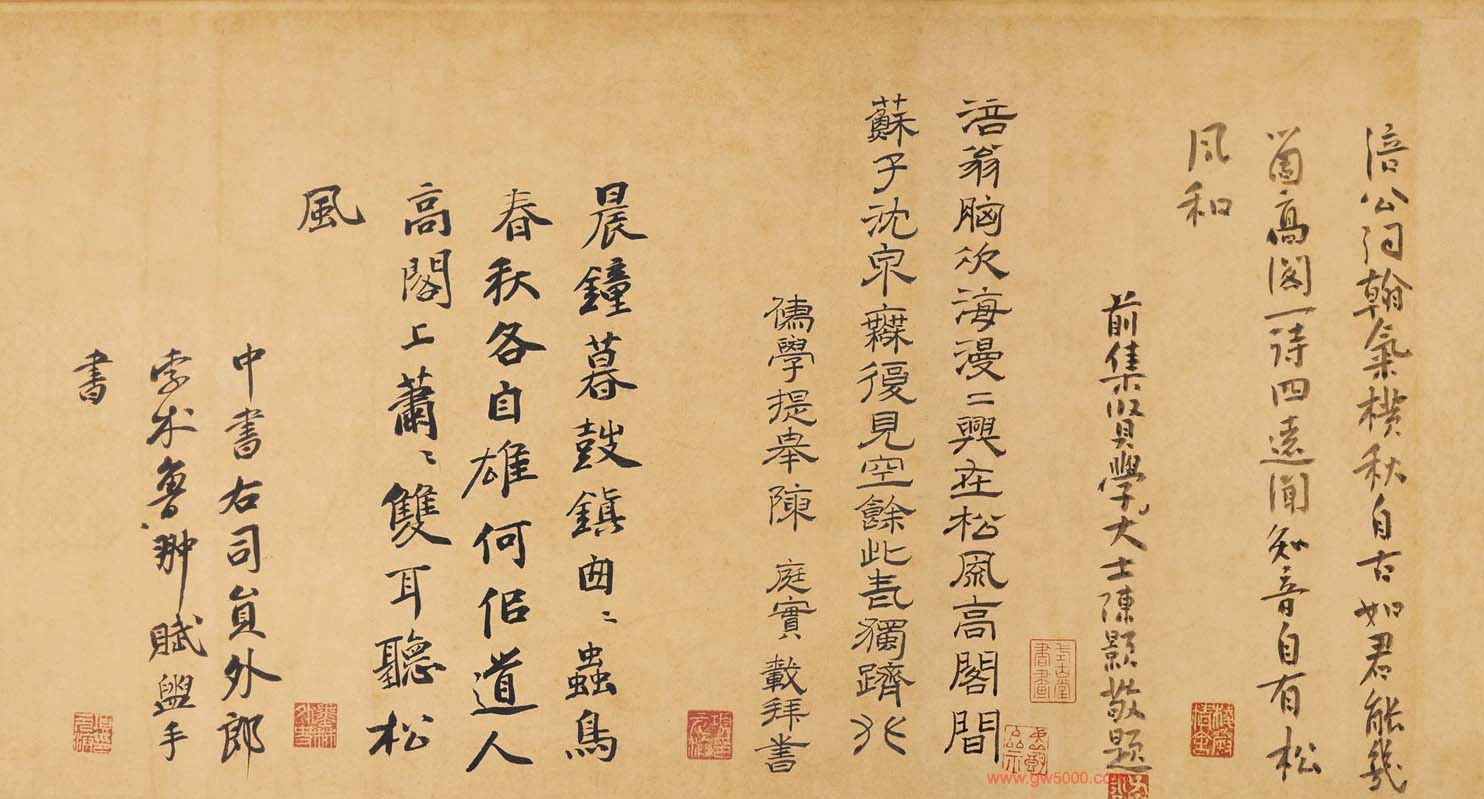 涪公詞翰氣橫秋自古如君能幾
箇高閣一詩四遠聞知音自有松
風和
前集賢學士陳顥敬題
涪翁胸次海漫二興在松風高閣間
蘇子沈泉寐復見空餘此卷獨躋
儒學提舉陳庭實載拜書
晨鐘暮鼓鎮匆〻蟲鳥
春秋各自雄何侣道人
高閣上蕭〻雙耳聽松
風
中書右司員外郎
孛术魯翀賦盥手
書
www.gw5000.co